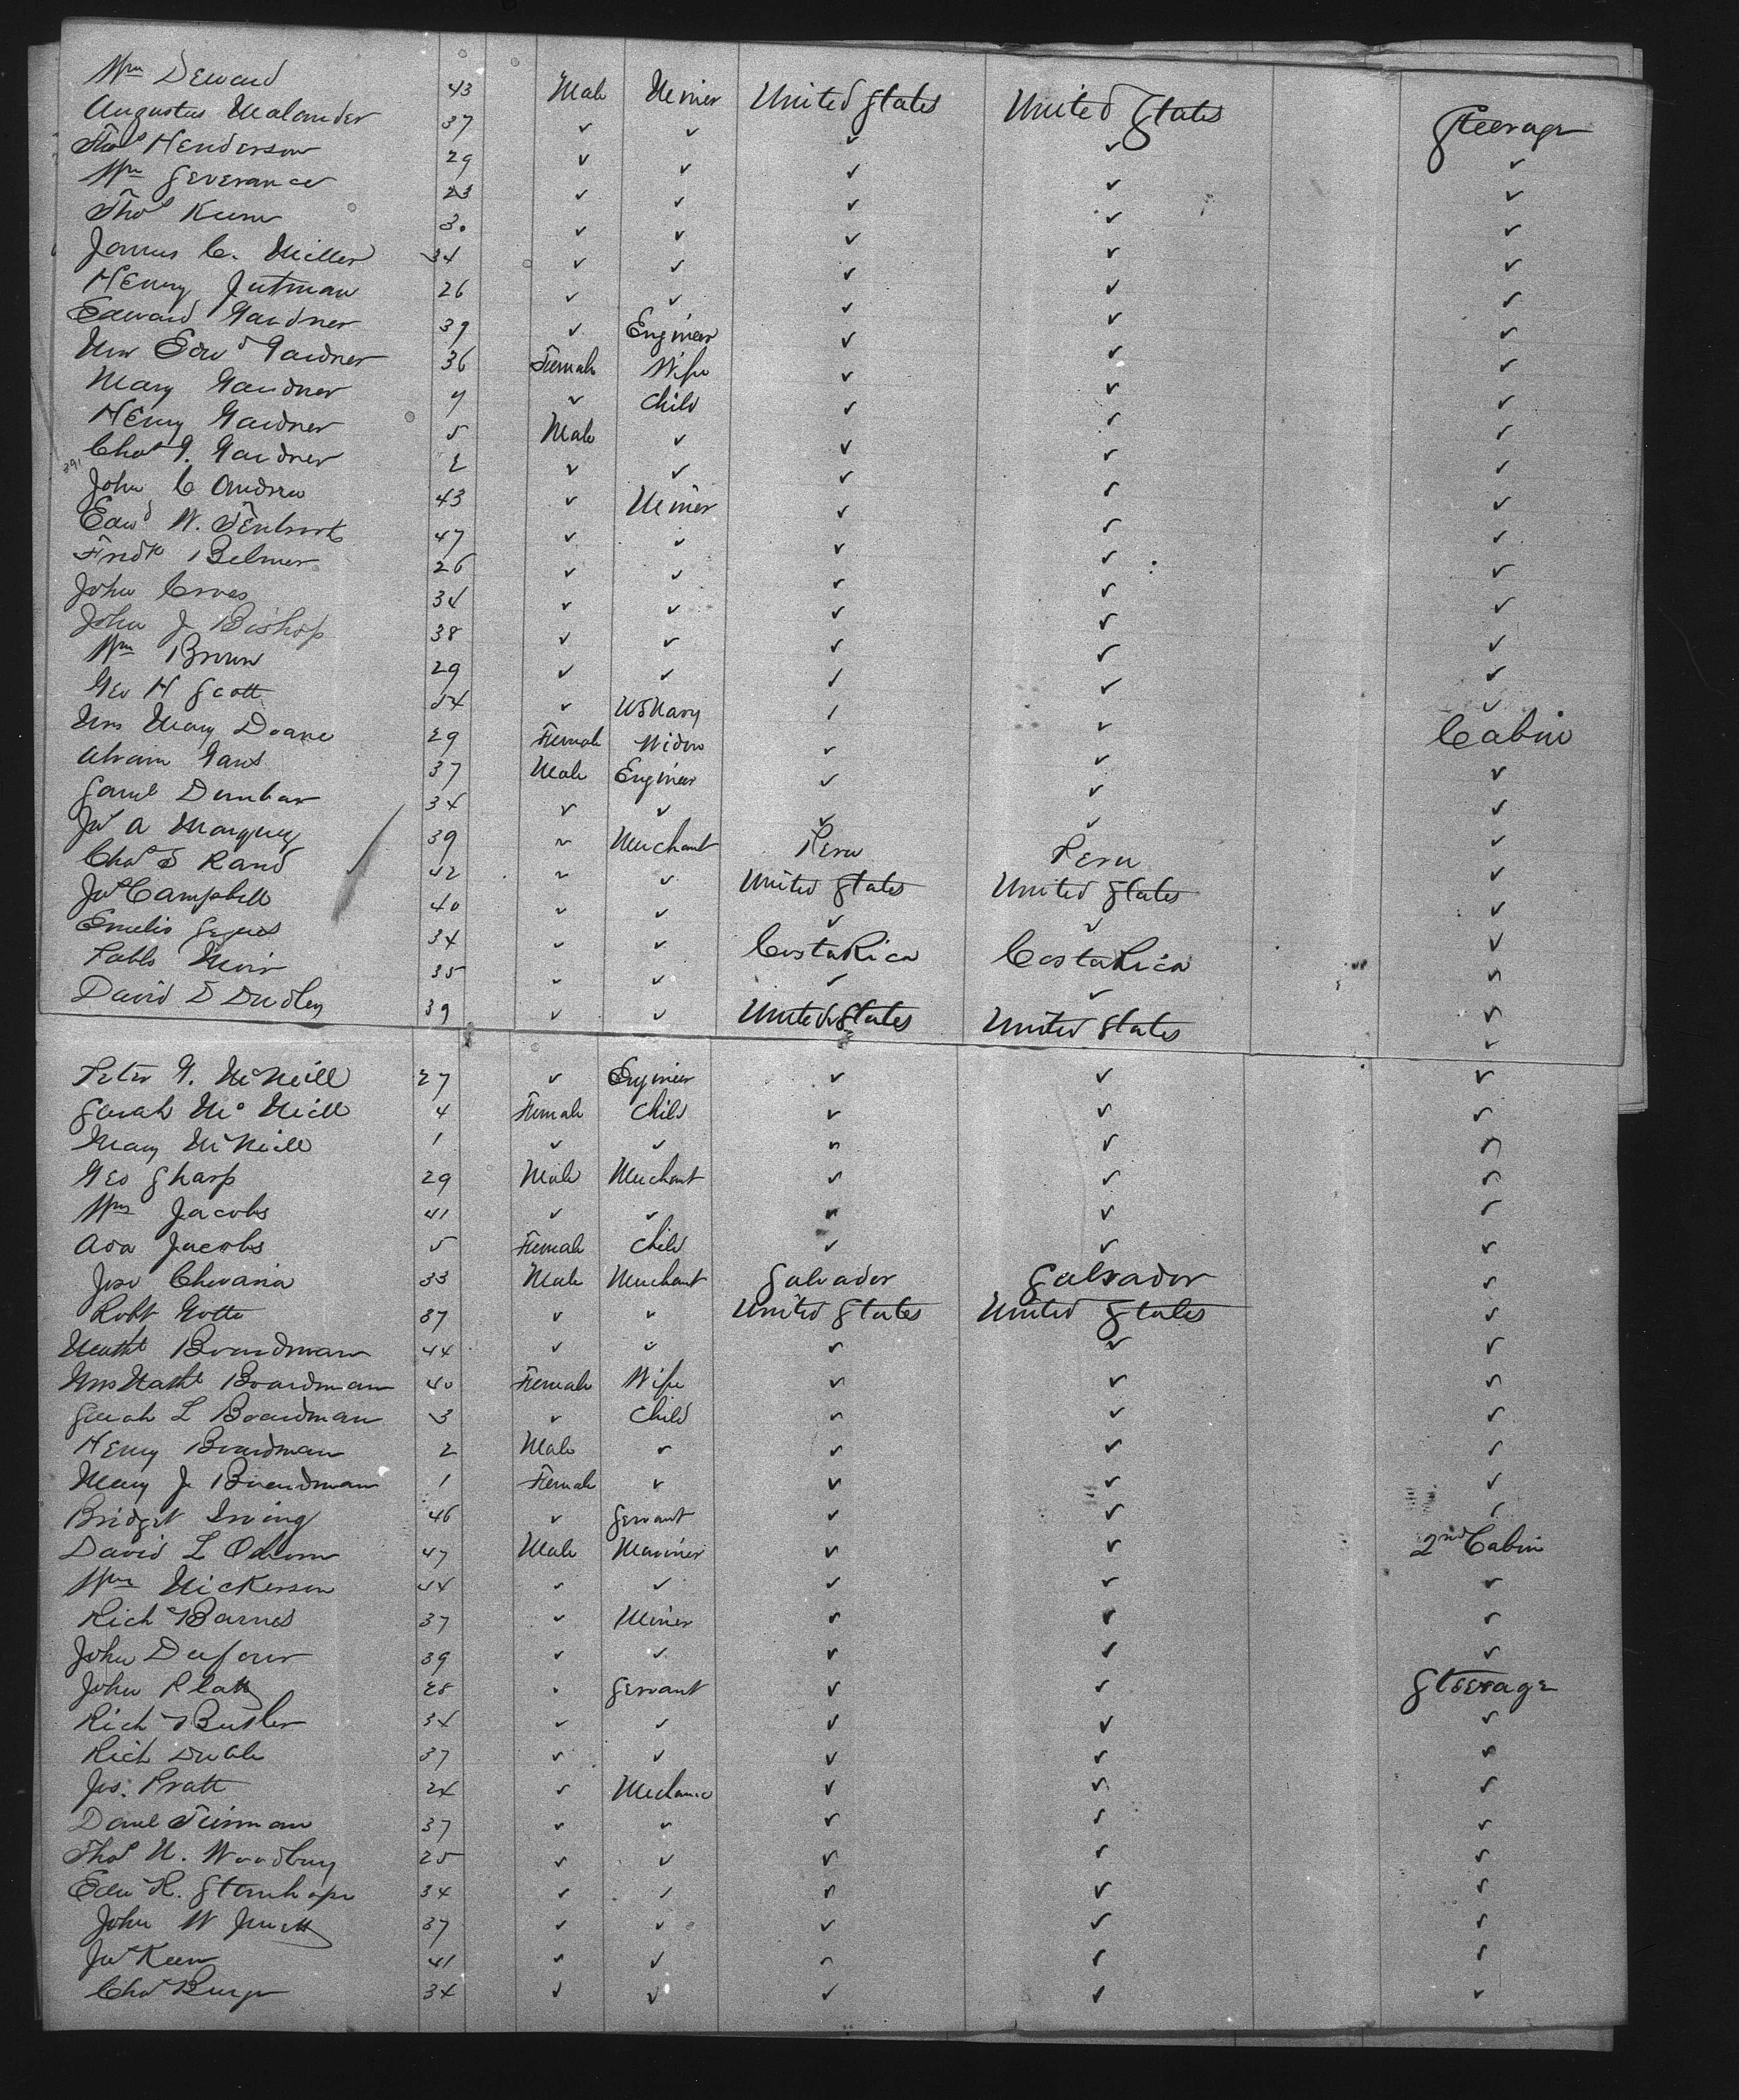 Wm Deward 43 Male Miner United States United States Steerage
Augustus Malander 37 ✓ ✓ ✓ ✓ ✓
Thos Henderson 29 ✓ ✓ ✓ ✓ ✓
Wm Severance 23 ✓ ✓ ✓ ✓ ✓
Thos Keene 30 ✓ ✓ ✓ ✓ ✓
James C. Miller 34 ✓ ✓ ✓ ✓ ✓
Henry Jutman 26 ✓ ✓ ✓ ✓ ✓
Edward Gardner 39 ✓ Engineer ✓ ✓ ✓
Mrs Edwd Gardner 36 Female Wife ✓ ✓ ✓
Mary Gardner 7 ✓ Child ✓ ✓ ✓
Henry Gardner 5 Male ✓ ✓ ✓ ✓
Chas G. Gardner 2 ✓ ✓ ✓ ✓ ✓
John C Andrew 43 ✓ Miner ✓ ✓ ✓
Edwd W. 47 ✓ ✓ ✓ ✓ ✓
Fredk Belmer 26 ✓ ✓ ✓ ✓ ✓
John 34 ✓ ✓ ✓ ✓ ✓
John J Bishop 38 ✓ ✓ ✓ ✓ ✓
Wm Brown 29 ✓ ✓ ✓ ✓ ✓
Geo H Scott 54 ✓ US Navy ✓ ✓ Cabin
Mrs Mary Doane 29 Female Widow ✓ ✓ ✓
Abram Gans 37 Male Engineer ✓ ✓ ✓
Saml Dunbar 34 ✓ ✓ ✓ ✓ ✓
Js A 39 ✓ Merchant Peru Peru ✓
Chas S Rand 42 ✓ ✓ United States United States ✓
Js Campbell 40 ✓ ✓ ✓ ✓ ✓
Emelio 34 ✓ ✓ Costa Rica Costa Rica ✓
Pablo Moir 35 ✓ ✓ ✓ ✓ ✓
David D Dudley 39 ✓ ✓ United States United States ✓
Peter G. McNeill 27 ✓ Engineer ✓ ✓ ✓
Sarah McNeill 4 Female Child ✓ ✓ ✓
Mary McNeill 1 ✓ ✓ ✓ ✓ ✓
Geo Sharp 29 Male Merchant ✓ ✓ ✓
Wm Jacobs 41 ✓ ✓ ✓ ✓ ✓
Ada Jacobs 5 Female Child ✓ ✓ ✓
Jose Chevaria 33 Male Merchant Salvador Salvador ✓
Robt Notte 37 ✓ ✓ United States United States ✓
Nathl Boardman 44 ✓ ✓ ✓ ✓ ✓
Mrs Nathl Boardman 40 Female Wife ✓ ✓ ✓
Sarah L Boardman 3 ✓ Child ✓ ✓ ✓
Henry Boardman 2 Male ✓ ✓ ✓ ✓
Mary J Boardman 1 Female ✓ ✓ ✓ ✓
Bridget Irving 46 ✓ Servant ✓ ✓ ✓
David L Osborn 47 Male Mariner ✓ ✓ 2nd Cabin
Wm Nickerson 44 ✓ ✓ ✓ ✓ ✓
Rich Barnes 37 ✓ Miner ✓ ✓ ✓
John Dufour 39 ✓ ✓ ✓ ✓ ✓
John Platt 28 ✓ Servant ✓ ✓ Steerage
Rich Butler 34 ✓ ✓ ✓ ✓ ✓
Rich 37 ✓ ✓ ✓ ✓ ✓
Jas. Pratt 24 ✓ Mechanic ✓ ✓ ✓
Danl 37 ✓ ✓ ✓ ✓ ✓
Thos N. Woodbury 25 ✓ ✓ ✓ ✓ ✓
Edw R. Stanhope 34 ✓ ✓ ✓ ✓ ✓
John W 37 ✓ ✓ ✓ ✓ ✓
Js Keen 41 ✓ ✓ ✓ ✓ ✓
Chas Burge 34 ✓ ✓ ✓ ✓ ✓